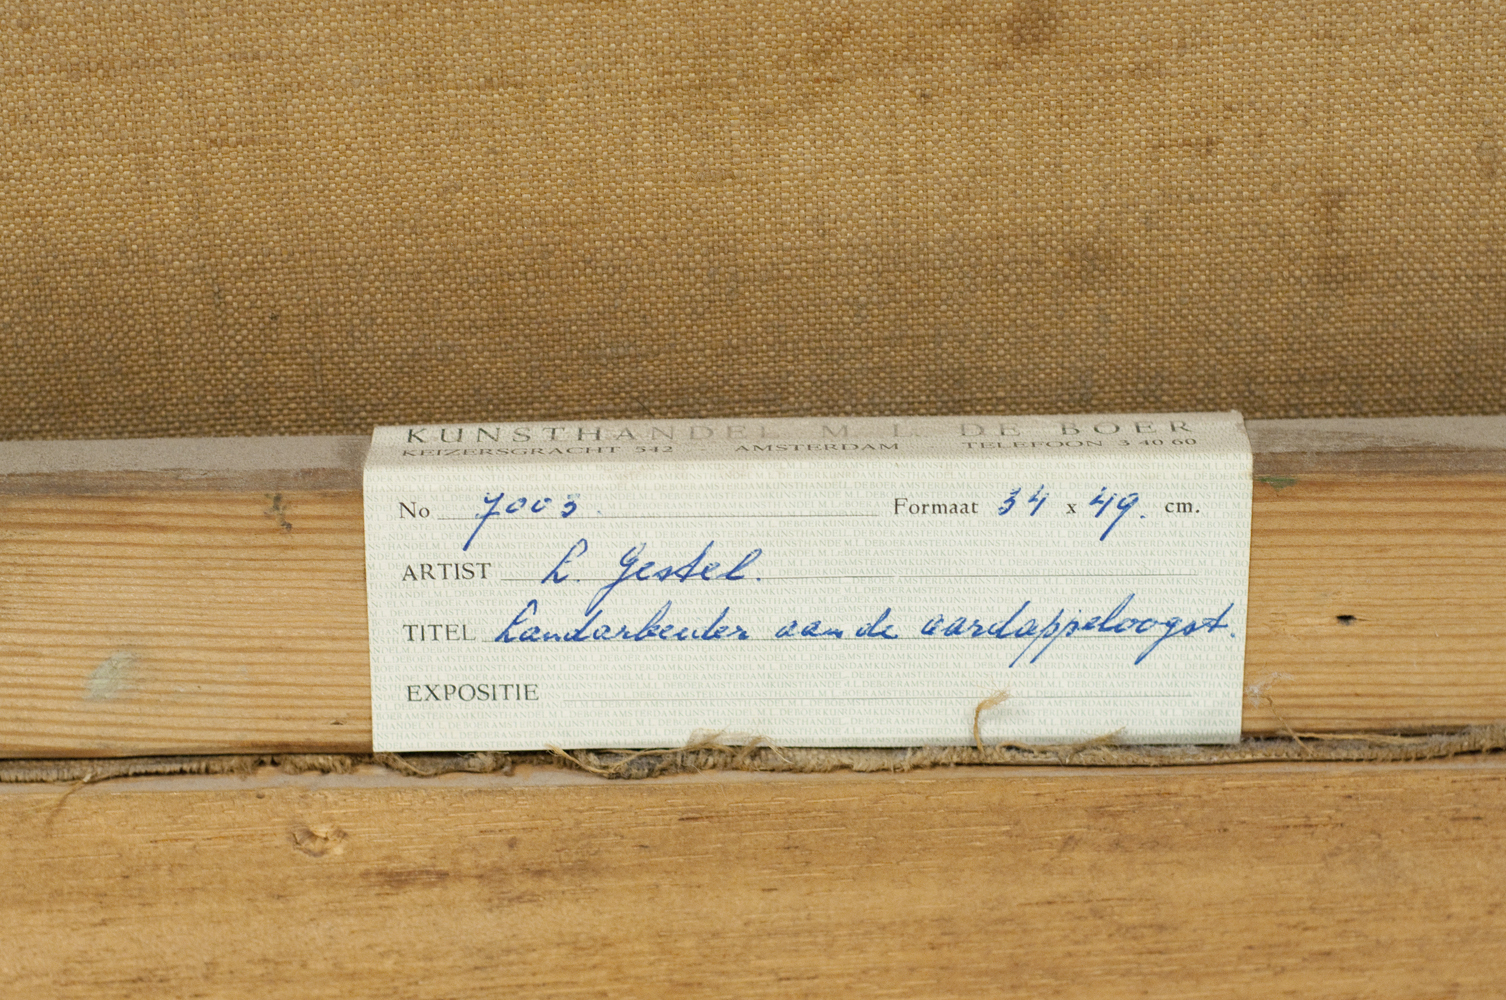 KUNSTHANDEL M. L. DE BOER
KEIZERSGRACHT 542 - AMSTERDAM - TELEFOON 3 40 60
No 7003. Formaat 34 x 49. cm.
ARTIST L. Gestel.
TITEL Landarbeider aan de aardappeloogst.
EXPOSITIE